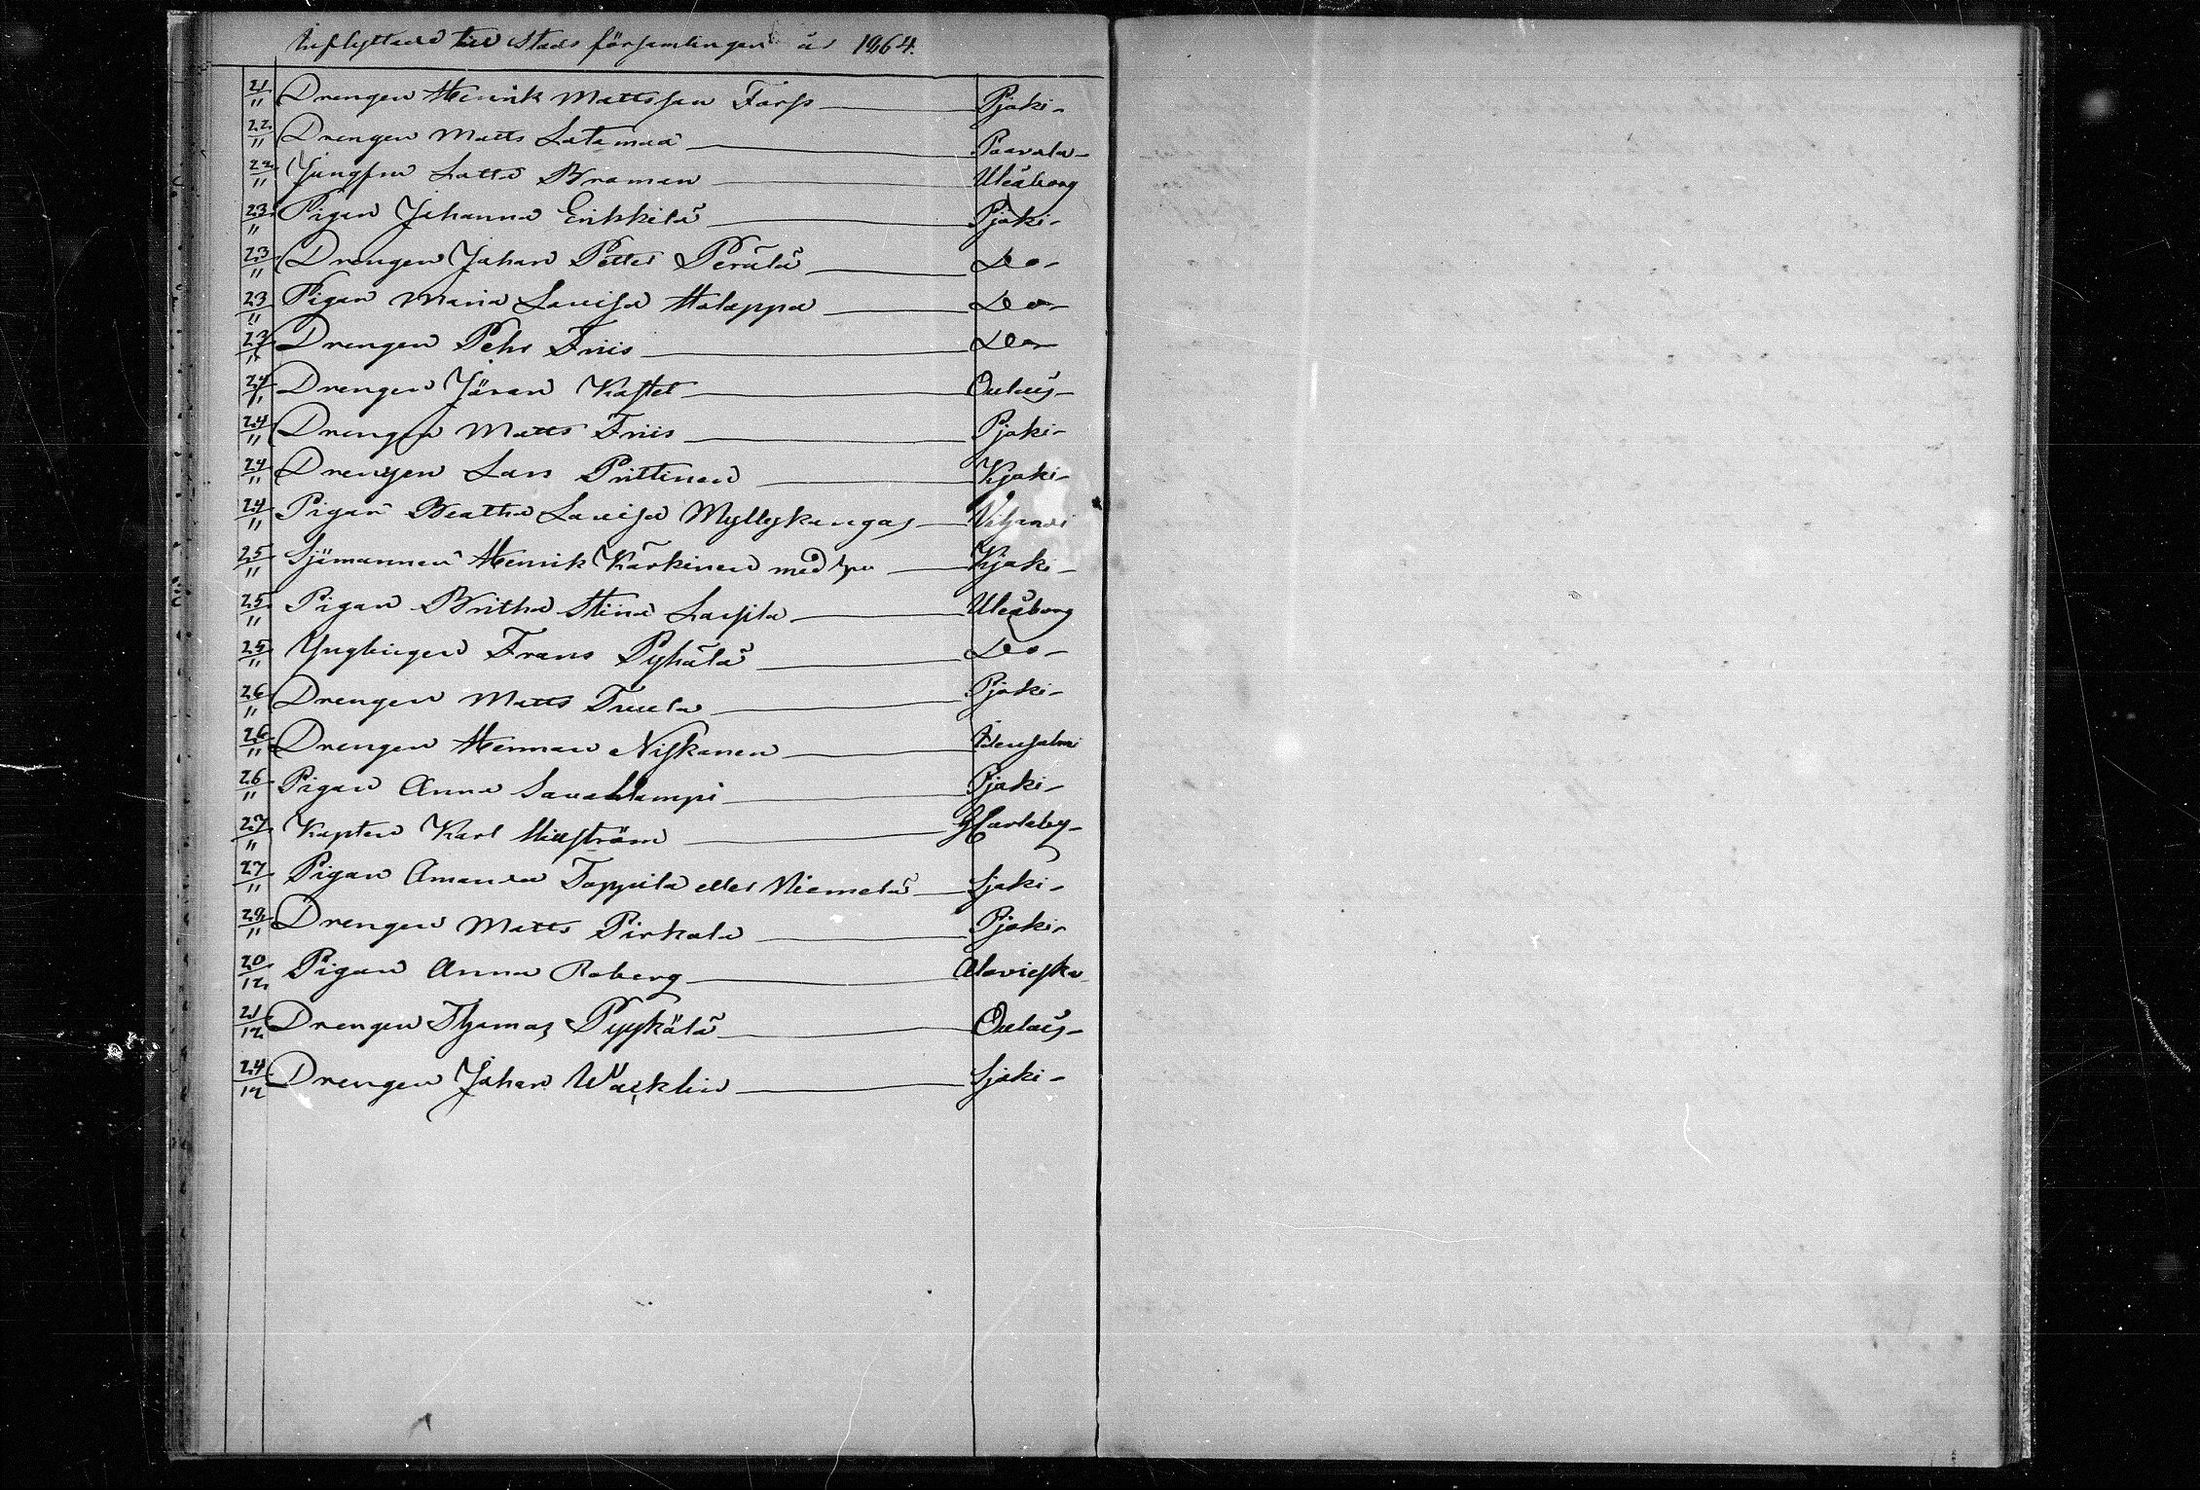 Inflyttade till Stads församlingen år 1864.
21/11 Drengen Henrik Mattsson Forss Pjoki-
22/11 Drengen Matts Latamaa Paavola-
22/11 Jungfru Lotta Broman Uleåborg
23/11 Pigan Johanna Erikkilä Pjoki-
23/11 Drengen Johan Petter Perälä Do-
23/11 Pigan Maria Lovisa Holappa Do-
23/11 Drengen Pehr Friis Do-
24/11 Drengen Jöran Kastel Oulais-
24/11 Drengen Matts Friis Pjoki-
24/11 Drengen Lars Prittinen Kjoki-
24/11 Pigan Beatha Lovisa Myllykangas
25/11 Sjömannen Henrik Kärkinen med hru Kjoki-
25/11 Pigan Britha Stina Lassila Uleåborg
25/11 Ynglingen Frans Pyhälä Do-
26/11 Drengen Matts Tuula Pjoki-
26/11 Drengen Herman Niskanen Idensalmi
26/11 Pigan Anna Savalampi Pjoki-
27/11 Kapten Karl Hellström GCarleby-
27/11 Pigan Amanda Toppila eller Niemelä Sjoki-
29/11 Drengen Matts Pirkola Pjoki-
20/12 Pigan Anna Roberg Alavieska
21/12 Drengen Thomas Pyykälä Oulais-
24/12 Drengen Johan Wacklin Sjoki-